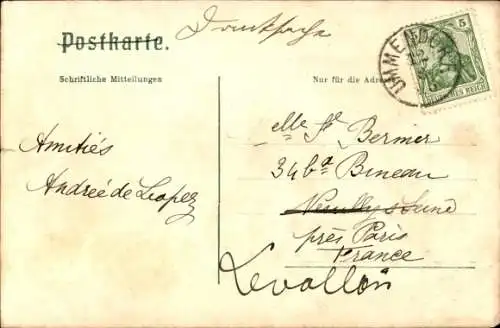 Postkarte.
Drucksache
Schriftliche Mitteilungen
Nur für die Adre
5
DEUTSCHES REICH
UMMENDORF
Amitiés
Andrée de Lopez
elle Bermier
34 bd Bineau
Neuilly s Seine
près Paris
France
Levallois